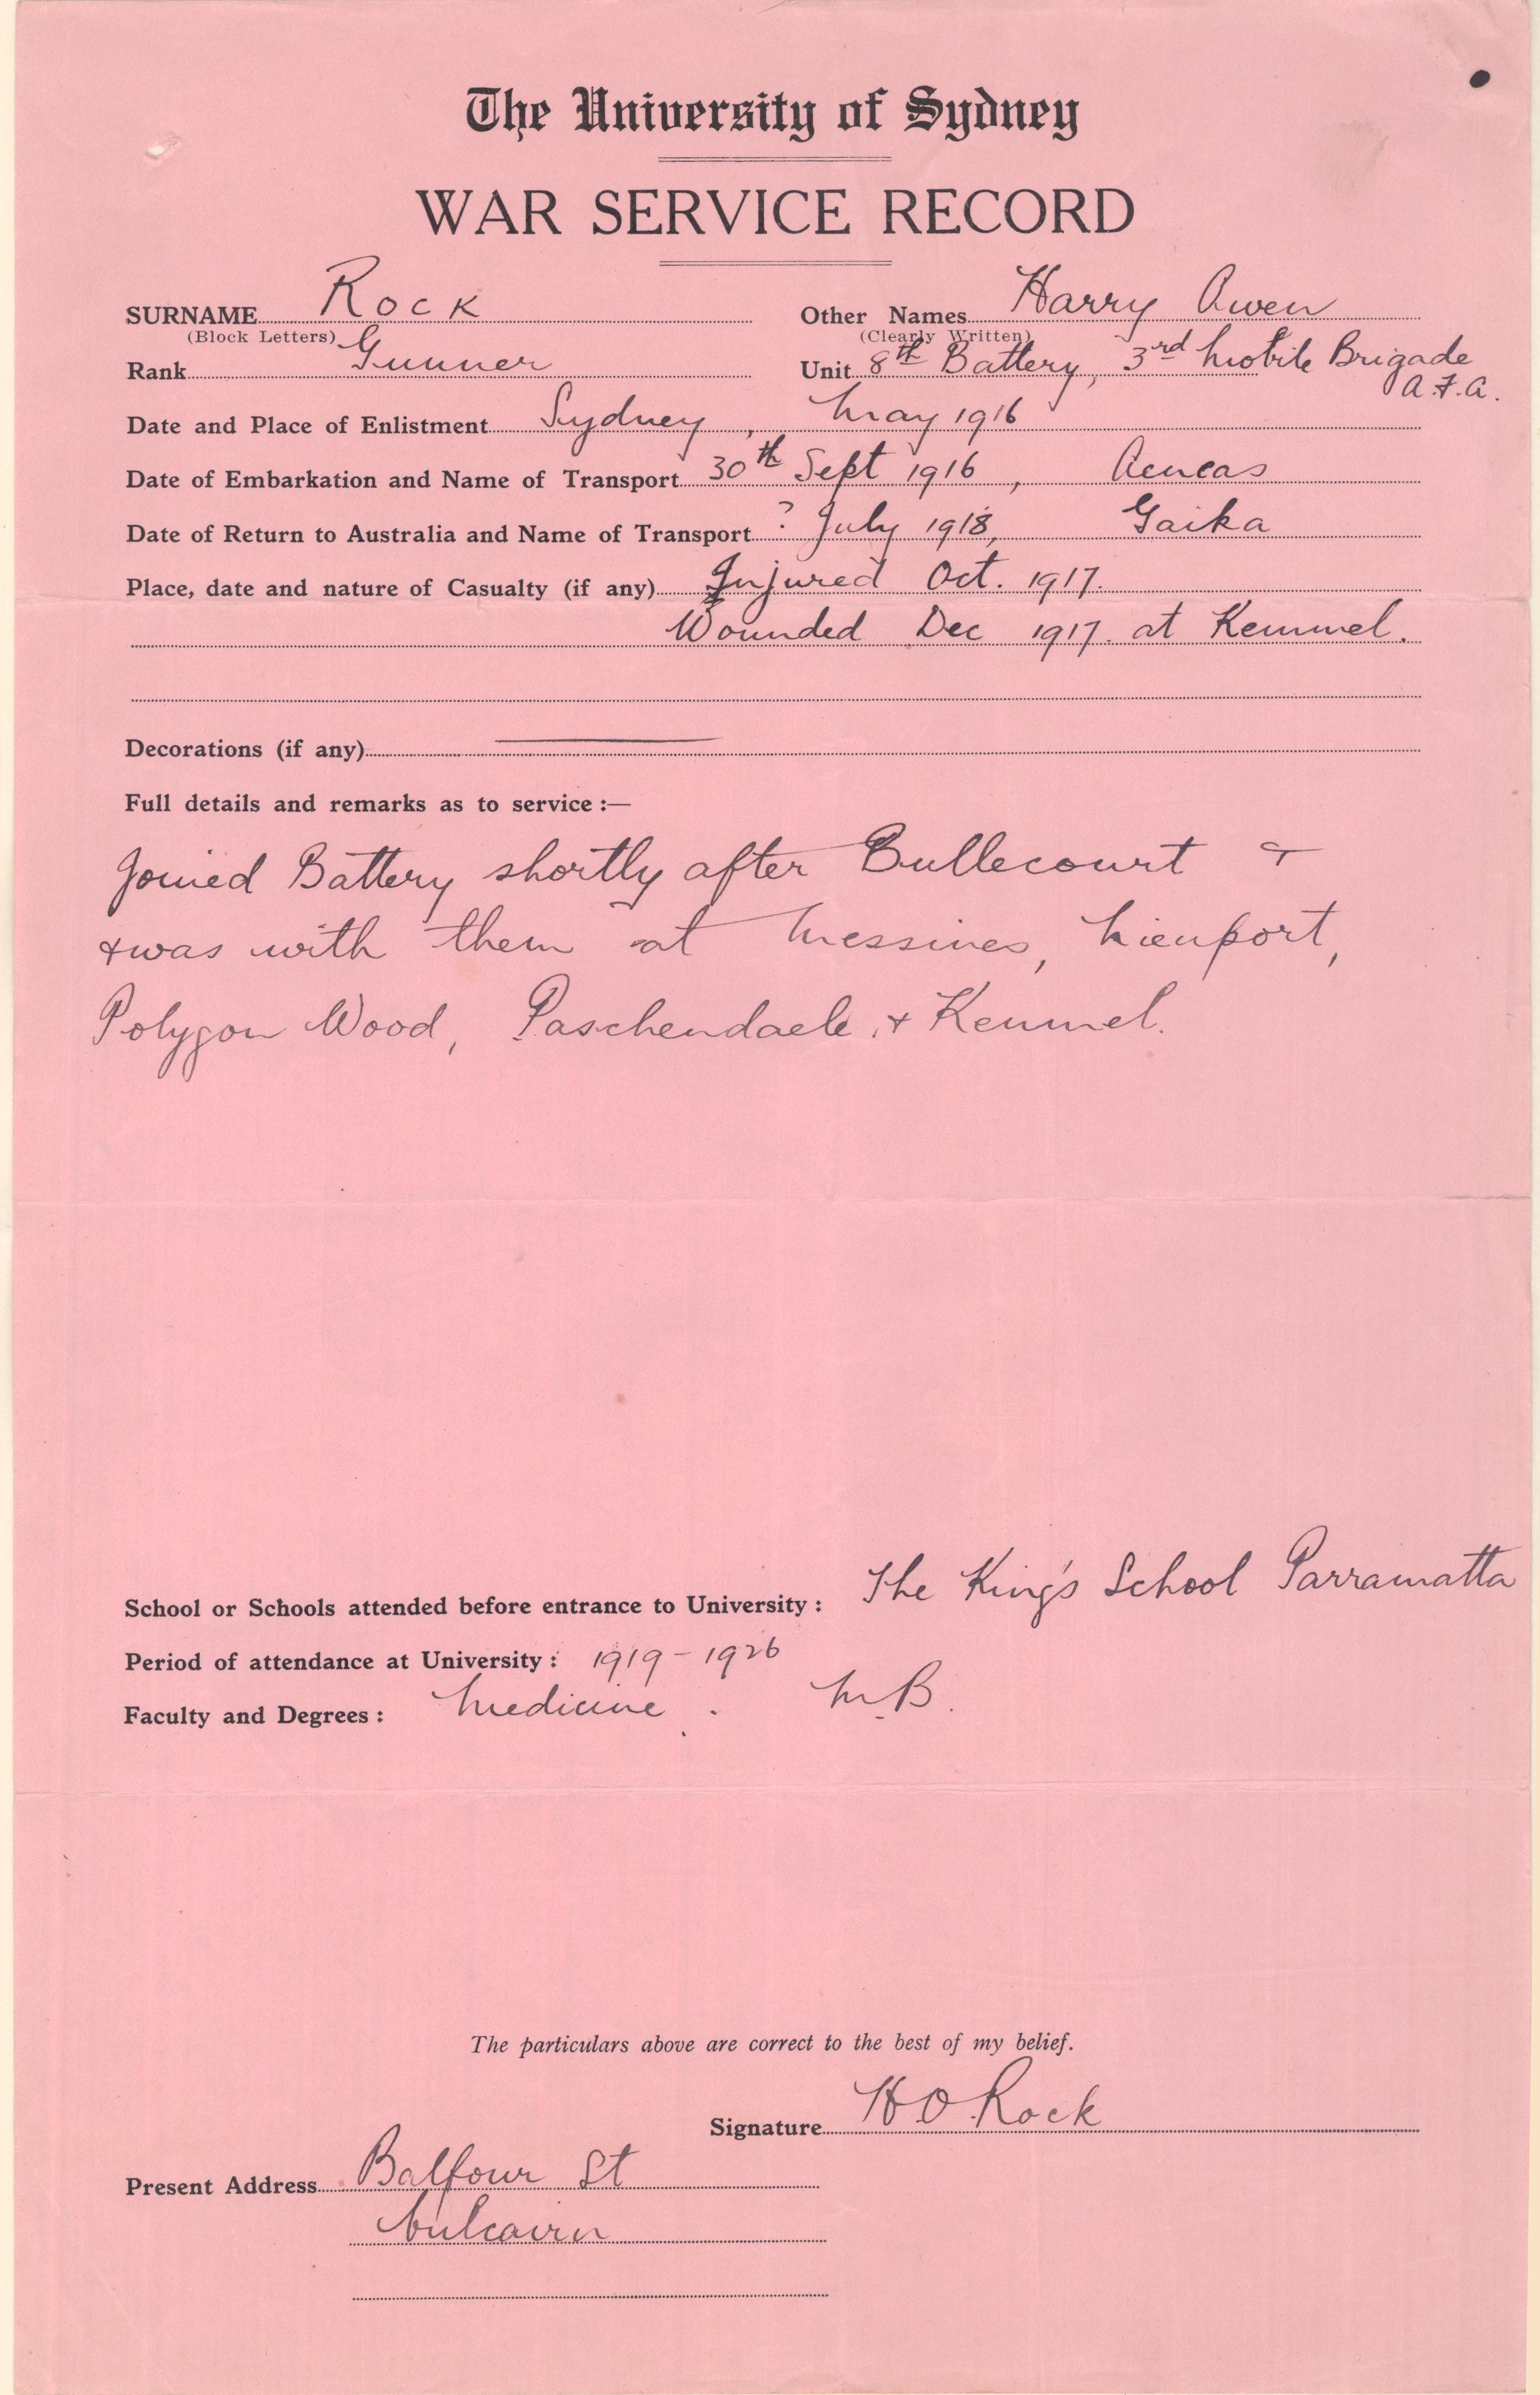 The University of Sydney
WAR SERVICE RECORD
SURNAME Rock Other Names Harry Owen
(Block Letters) (Clearly Written)
Rank Gunner Unit 8th Battery, 3rd Mobile Brigade
A.F.A.
Date and Place of Enlistment Sydney, May 1916
Date of Embarkation and Name of Transport 30th Sept 1916, Aeneas
Date of Return to Australia and Name of Transport ? July 1918, Gaika
Place, date and nature of Casualty (if any) Injured Oct. 1917.
Wounded Dec 1917. at Kemmel.
Decorations (if any) —
Full details and remarks as to service :—
Joined Battery shortly after Bullecourt +
+ was with them at Messines, Nieuport,
Polygon Wood, Paschendaele, + Kemmel.
School or Schools attended before entrance to University : The King's School Parramatta
Period of attendance at University : 1919 - 1926
Faculty and Degrees : Medicine. M.B.
The particulars above are correct to the best of my belief.
Signature H O Rock
Present Address Balfour St
Culcairn